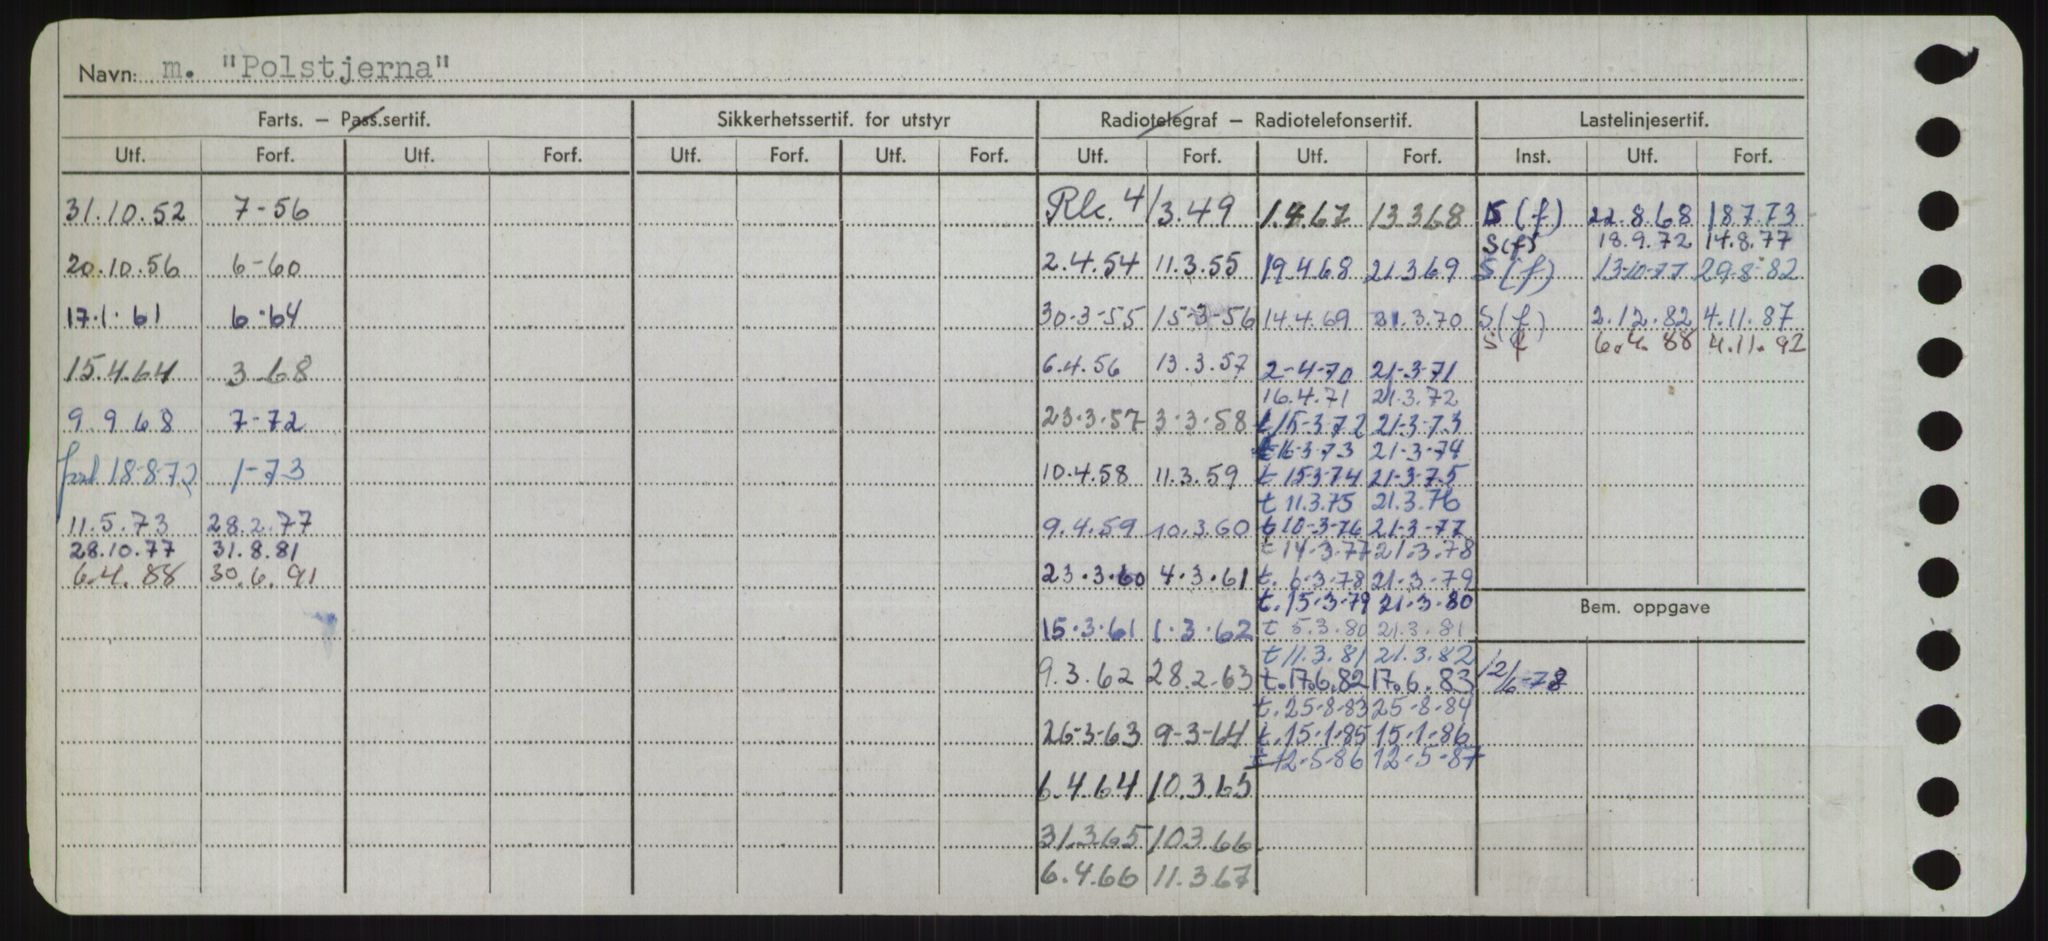 Navn: m. "Polstjerna"
Farts. – Pass.sertif. Sikkerhetssertif. for utstyr Radiotelegraf – Radiotelefonsertif. Lastelinjesertif.
Utf. Forf. Utf. Forf. Utf. Forf. Utf. Forf. Utf. Forf. Utf. Forf. Inst. Utf. Forf.
31.10.52 7-56 Rk. 4/3.49 1.4.67 13.3.68 S (f) 22.8.68 18.7.73
S(f) 18.9.72 14.8.77
20.10.56 6-60 2.4.54 11.3.55 19.4.68 21.3.69 S (f) 13-10-77 29.8-82
17.1.61 6-64 30-3-55 15-3-56 14.4.69 21.3.70 S(f) 2.12.82 4.11.87
S f 6.4.88 4.11.92
15.4.64 3.68 6.4.56 13.3.57 2-4-70 21-3-71
16.4.71 21.3.72
9.9.68 7-72 23.3.57 3.3.58 t/15-3-72 21-3-73
t 16-3-73 21-3-74
forl 18-8-72 1-73 10.4.58 11.3.59 t 15-3-74 21-3-75
t 11.3.75 21.3.76
11.5.73 28.2.77 9.4.59 10.3.60 t 10-3-76 21-3-77
28.10.77 31.8.81 t 14-3.77 21.3.78
6.4.88 30.6.91 23.3.60 4.3.61 t. 6-3-78 21-3-79
t. 15-3-79 21-3-80 Bem. oppgave
15.3.61 1.3.62 t 5.3.80 21.3.81
t 11.3.81 21.3.82
9.3.62 28.2.63 t. 17.6.82 17.6.83 12/6-78
t. 25-8-83 25-8-84
26-3-63 9-3-64 t. 15-1-85 15-1-86
t 12-5-86 12-5-87
6.4.64 10.3.65
31.3.65 10.3.66
6.4.66 11.3.67